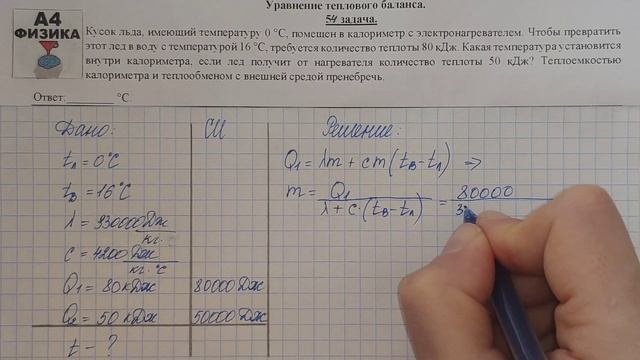 Уравнение теплового баланса.
54 задача.
А4
ФИЗИКА
Кусок льда, имеющий температуру 0 °С, помещен в калориметр с электронагревателем. Чтобы превратить
этот лед в воду с температурой 16 °С, требуется количество теплоты 80 кДж. Какая температура установится
внутри калориметра, если лед получит от нагревателя количество теплоты 50 кДж? Теплоемкостью
калориметра и теплообменом с внешней средой пренебречь.
Ответ:________ °С.
Дано:
tл = 0°C
tв = 16°C
λ = 330000 Дж/кг
c = 4200 Дж/кг·°C
Q1 = 80 кДж
Q2 = 50 кДж
t – ?
СИ
80000 Дж
50000 Дж
Решение:
Q1 = λm + cm(tв – tл) ⇒
m = Q1/(λ + c·(tв – tл)) = 80000/3